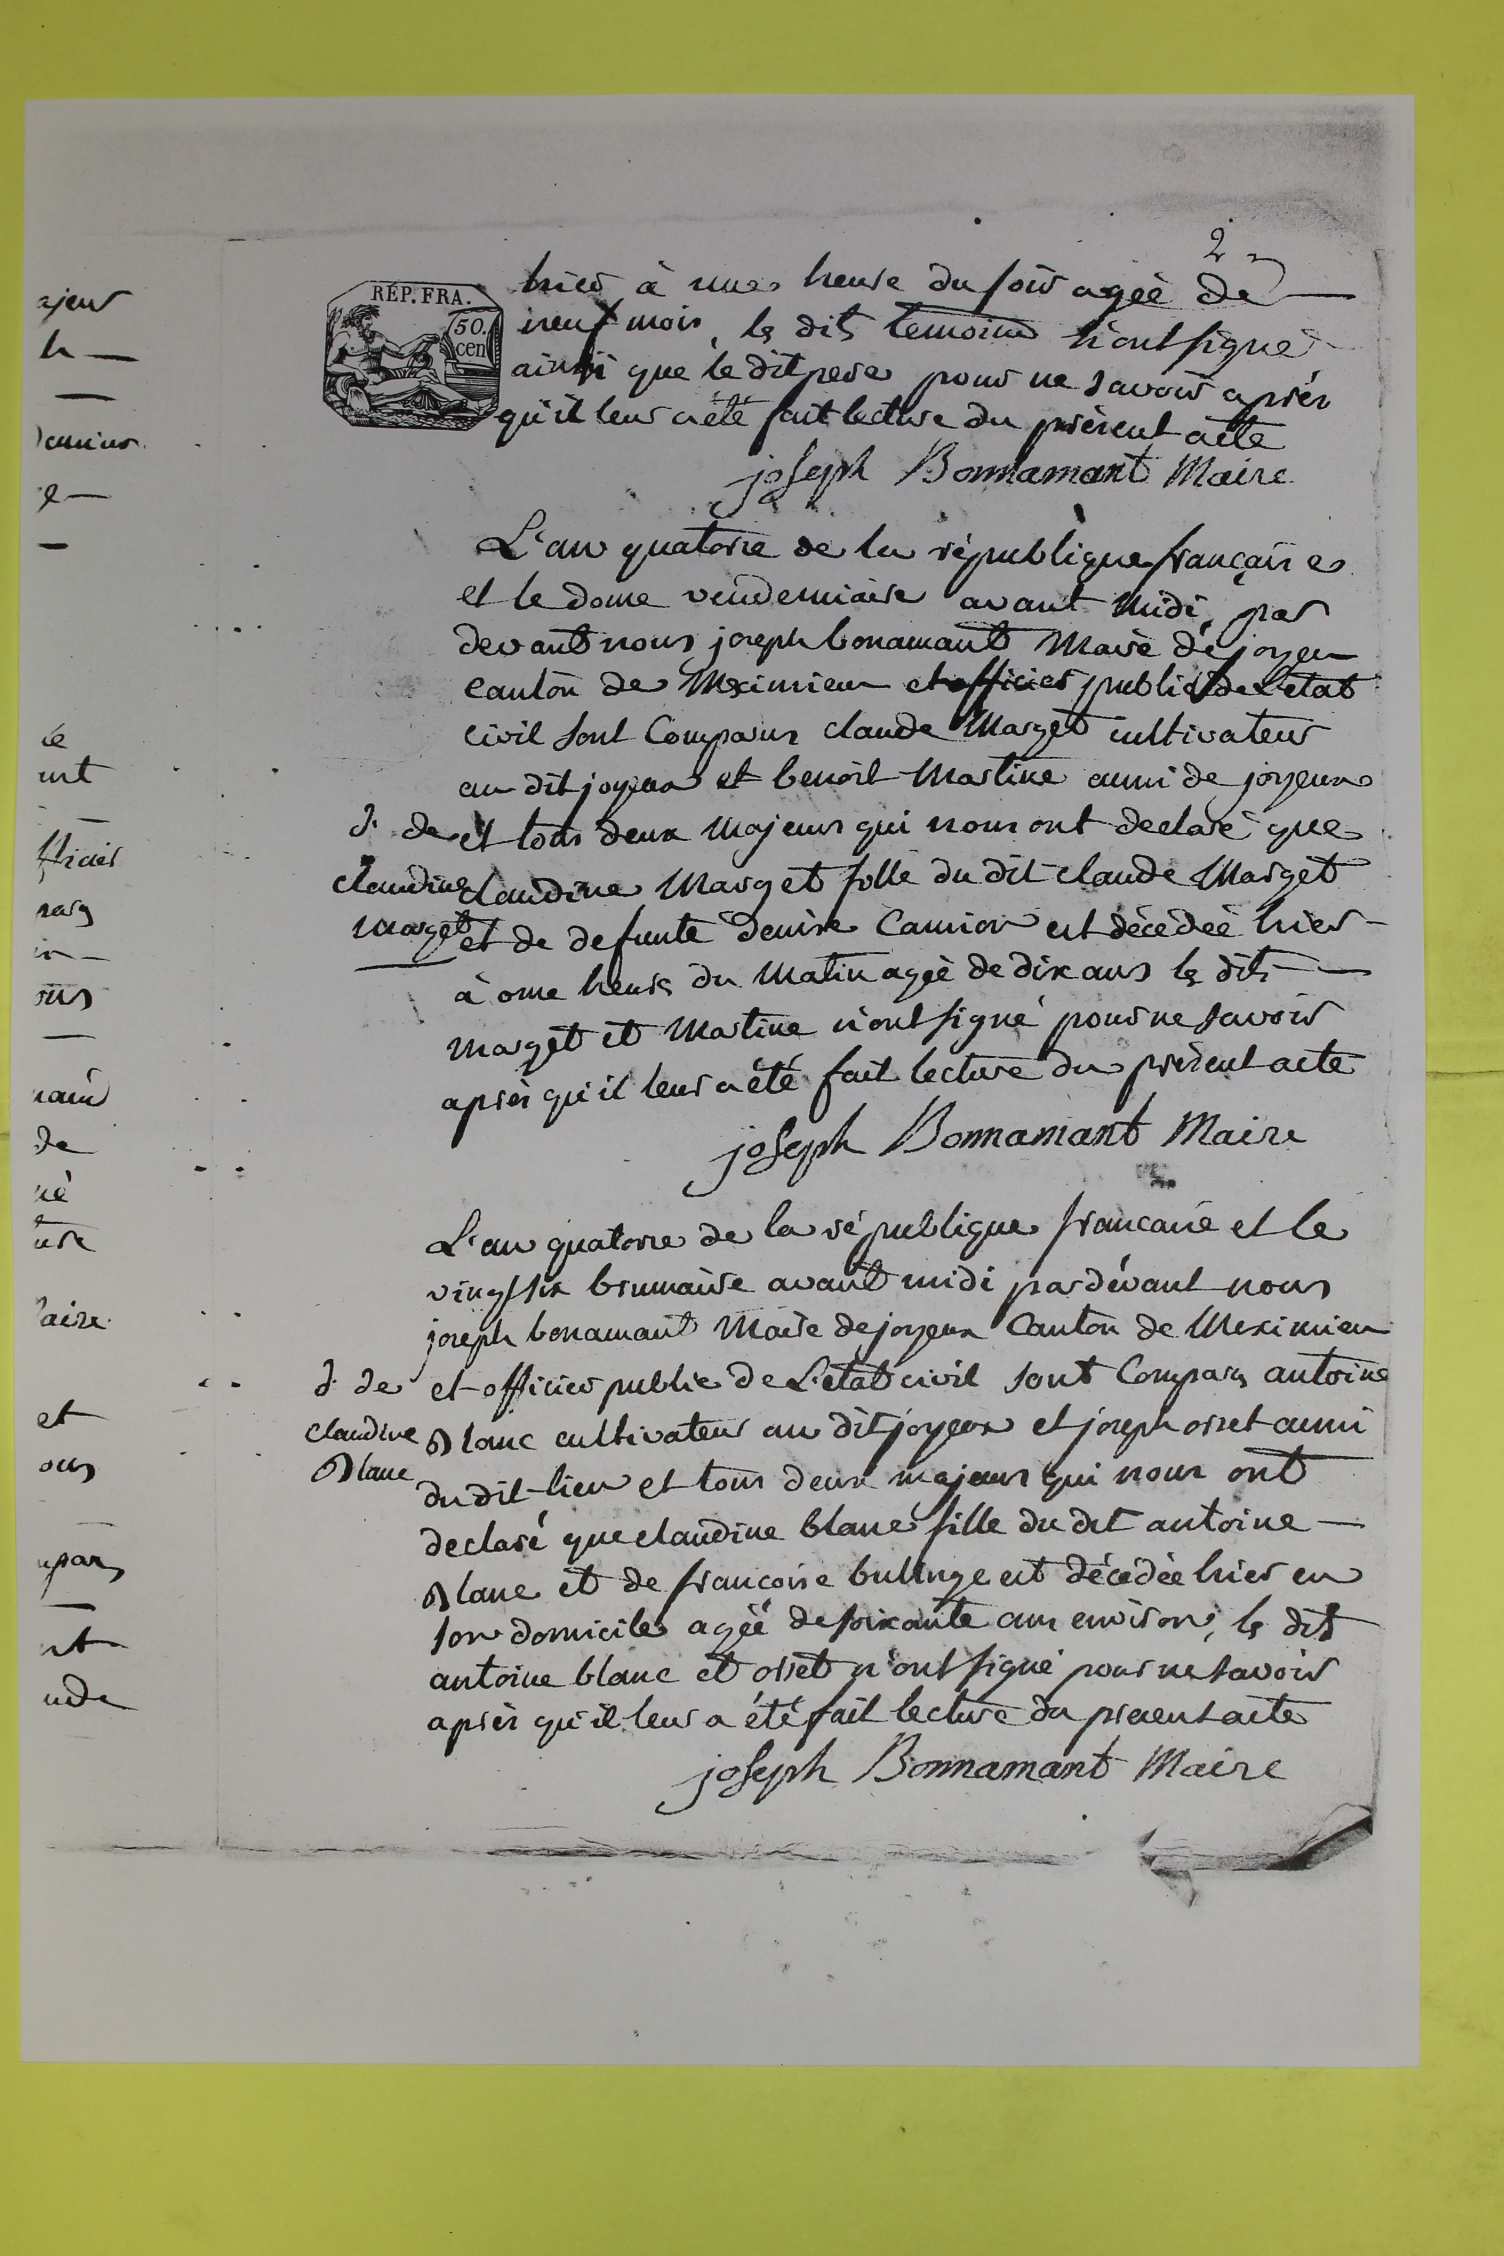 2
RÉP. FRA.
50.
cen
hier à une heure du soir agèè de
neuf mois, ls dits temoins n'ont signe
ainsi que le dit pere pour ne savoir après
qu'il leur a été fait lecture du prèsent acte
joseph Bonnamant Maire
L'an quatorze de la république françaises
et le douze vendemiaire avant Midi, par
devant nous joseph bonamant Maire de joyeu
Canton de Meximieu et officier public de L'etat
civil sont Comparus claude Marget cultivateur
au dit joyeux et benoit Martine aussi de joyeux
d. de et tous deux Majeurs qui nous ont declaré que
claudine claudine Marget fille du dit claude Marget
Marget et de defunte denise Camion est décédeé hier
à onze heures du Matin ageè de dix ans ls dits
Marget et Martine n'ont signé pour ne savoir
après qu'il leur a été fait lecture du prèsent acte
joseph Bonnamant Maire
L'an quatorze de la république francaise et le
vingt six brumaire avant midi par dévant nous
joseph bonamant Maire de joyeux Canton de Meximieu
d. de et officier public de L'etat civil sont Comparus antoine
claudine Blanc cultivateur au dit joyeux et joseph orset aussi
Blanc du dit lieu et tous deux majeurs qui nous ont
declaré que claudine blanc fille du dit antoine
Blanc et de francoise bulinge est décédée hier en
son domicile ageè de soixante ans environ, ls dits
antoine blanc et orset n'ont signé pour ne savoir
après qu'il leur a été fait lecture du present acte
joseph Bonnamant Maire